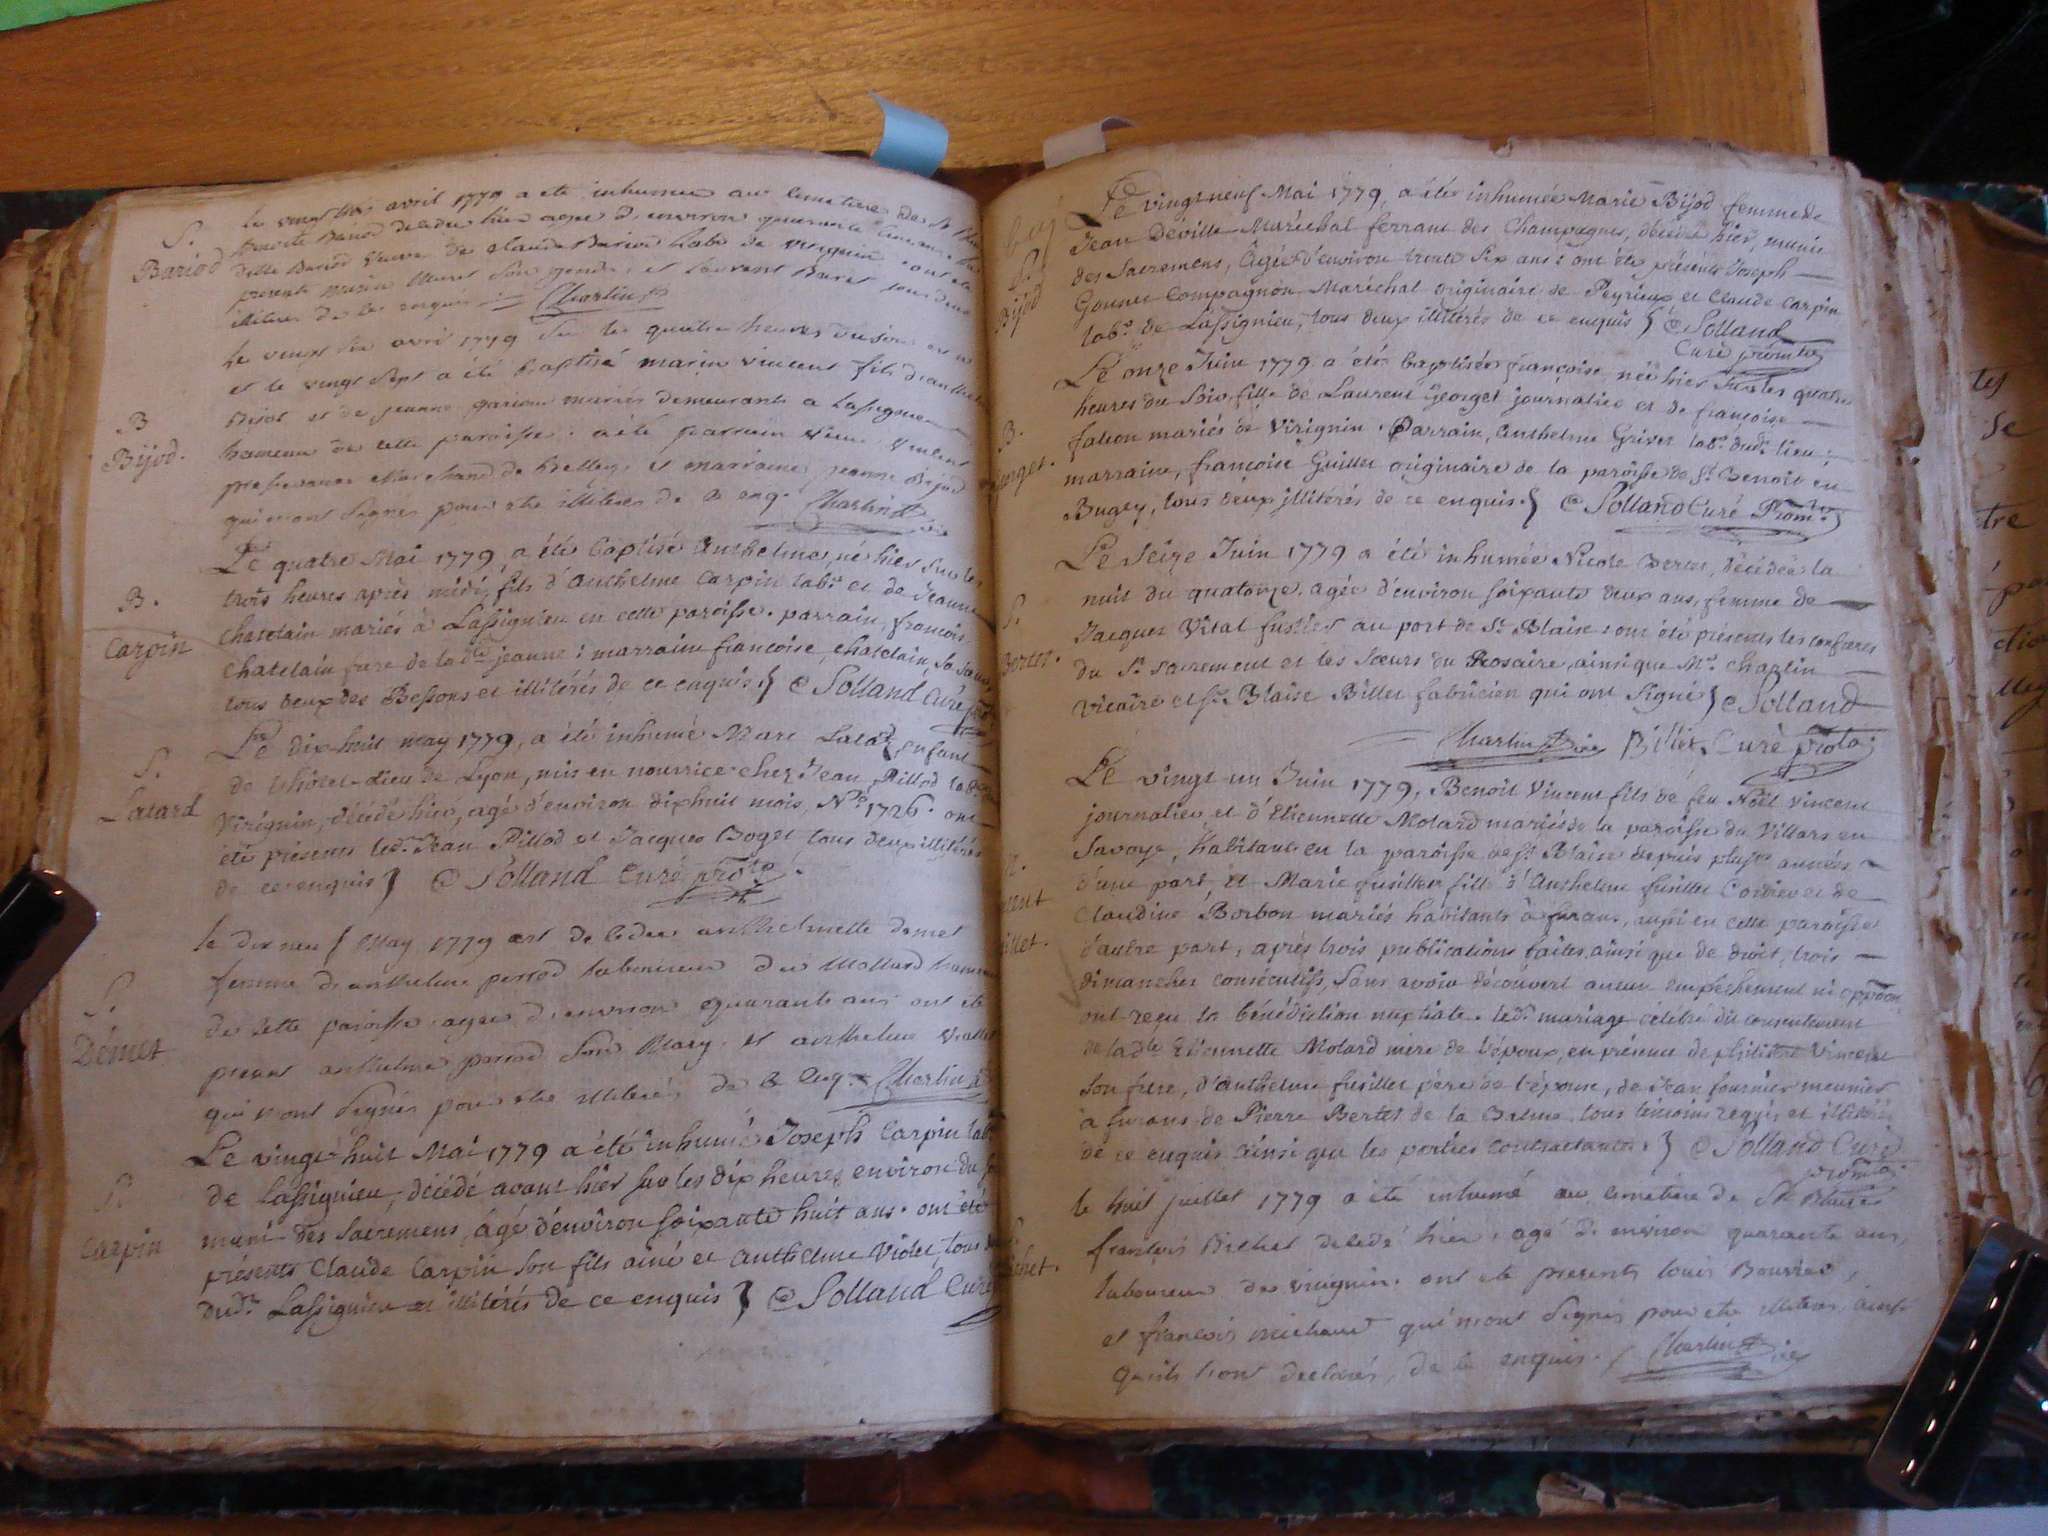 S.
Bariod
le vingt trois avril 1779 a ete inhumée au cimetiere de St
benoite Bariod decedée hier agée d'environ quarante
veuve de claude Bariod Labr de virignin ont ete
presents marin son gendre, et laurent Buret tous deux
illiteres de ce enquis Charlin
B
Bijod.
le vingt six avril 1779 sur les quatre heures du soir est né
et le vingt sept a été baptisé marin vincent fils d'anthelme
Bijot et de jeanne mariés demeurants a Lassignieu
hameau de cette paroisse : a été parrain vincent
marchand de belley, et marraine jeanne Bijod
qui n'ont signés pour etre illiteres de ce enq. Charlin
B.
Carpin
Le quatre Mai 1779, a été baptisé Anthelme, né hier sur les
trois heures après midi, fils d'Anthelme Carpin labr. et de Jeanne
Chatelain mariés à Lassignieu en cette paroisse. parrain, françois
Chatelain frere de la dte jeanne : marraine francoise chatelain, sa soeur,
tous deux des Bessons et illitérés de ce enquis } Solland Curé
S.
Latard
Le dix-huit may 1779, a été inhumé Marc Latard, enfant
de l'hôtel-dieu de Lyon, mis en nourrice chez Jean Pillod labr.
Virignin, décédé hier, agé d'environ dixhuit mois, No. 1726. ont
été présents led. Jean Pillod et Jacques Boget tous deux illitérés
de ce enquis } Solland Curé
S.
Démet
le dix neuf May 1779 est decedee anthelmette demet
femme d'anthelme perrod laboureur du Mollard hameau
de cette paroisse agée d'environ quarante ans ont été
presents anthelme perrod son Mary, et anthelme
qui n'ont signés pour etre illiterés de ce enq. Charlin
S.
Carpin
Le vingt huit Mai 1779 a été inhumé Joseph Carpin labr
de Lassignieu, décédé avant hier sur les dix heures environ du soir
muni des sacremens, âgé d'environ soixante huit ans. ont été
présents Claude Carpin son fils ainé et Anthelme Violet, tous deux
dud. Lassignieu et illitérés de ce enquis } Solland Curé
S.
Bijod
Le vingt neuf Mai 1779, a été inhumée Marie Bijod femme de
Jean Déville Maréchal ferrant des Champagnes, décédée hier, munie
des Sacremens, âgée d'environ trente six ans : ont été présents Joseph
Gonnet Compagnon Maréchal originaire de Peyrieux et Claude Carpin
labr. de Lassignieu, tous deux illitérés de ce enquis } Solland
Curé
B.
Georget.
Le onze Juin 1779 a été baptisée françoise, née hier sur les quatre
heures du soir, fille de Laurent Georget journalier et de françoise
falcon mariés de Virignin. Parrain, Anthelme Grivet labr. dud. lieu ;
marraine, françoise Guillet originaire de la paroisse de St. Benoit en
Bugey, tous deux illitérés de ce enquis. } Solland Curé
S.
Bertet.
Le seize Juin 1779 a été inhumée Nicole Bertet, décédée la
nuit du quatorze, agée d'environ soixante deux ans, femme de
Jacques Vital fustier au port de St. Blaise : ont été présents les confreres
du St. sacrement et les soeurs du Rosaire, ainsi que Mr. Charlin
vicaire et Sr. Blaise Billet fabricien qui ont signé } Solland
Charlin vic Billet. Curé
Le vingt un Juin 1779, Benoit Vincent fils de feu Noël Vincent
journalier et d'Etiennette Molard mariés de la paroisse du Villard en
Savoye, habitant en la paroisse de St. Blaise depuis plusrs années
d'une part, et Marie fusillet fille d'Anthelme fusillet Cordier et de
Claudine Borbon mariés habitants à furans, aussi en cette paroisse
d'autre part, après trois publications faites ainsi que de droit, trois
dimanches consécutifs, sans avoir découvert aucun empêchement ni opp̃on
ont reçu la bénédiction nuptiale. led. mariage célébré du consentement
de la dte Etiennette Molard mere de l'époux, en présence de Vincent
son frere, d'Anthelme fusillet père de l'épouse, de Jean fournier meunier
à furans, de Pierre Bertet de la Balme, tous témoins reqis, et illitérés
de ce enquis ainsi que les parties contractantes. } Solland Curé
le huit juillet 1779 a été inhumé au cimetiere de St Blaise
françois decedé hier, agé d'environ quarante ans,
laboureur de virignin. ont ete presents louis Bouvier,
et françois michaud qui n'ont signés pour etre illiteres, ainsi
qu'ils l'ont declarés, de ce enquis. Charlin vic